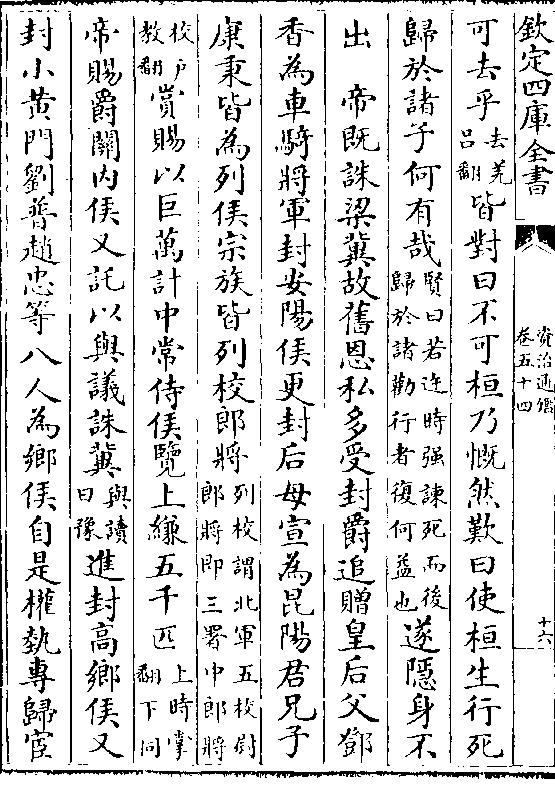 欽定四庫全書
資治通鑑
卷五十四
十六
可去乎去羌呂翻皆對曰不可桓乃慨然歎曰使桓生行死
歸於諸子何有哉賢曰若迕時强諫死而後歸於諸勸行者復何益也遂隠身不
出　帝既誅梁冀故舊恩私多受封爵追贈皇后父鄧
香為車騎將軍封安陽侯更封后母宣為昆陽君兄子
康秉皆為列侯宗族皆列校郎將列校謂北軍五校尉郎將即三署中郎將
校户教翻賞賜以巨萬計中常侍侯覽上縑五千匹上時掌翻下同
帝賜爵關内侯又託以與議誅冀與讀曰豫進封高鄉侯又
封小黄門劉普趙忠等八人為鄉侯自是權埶專歸宦